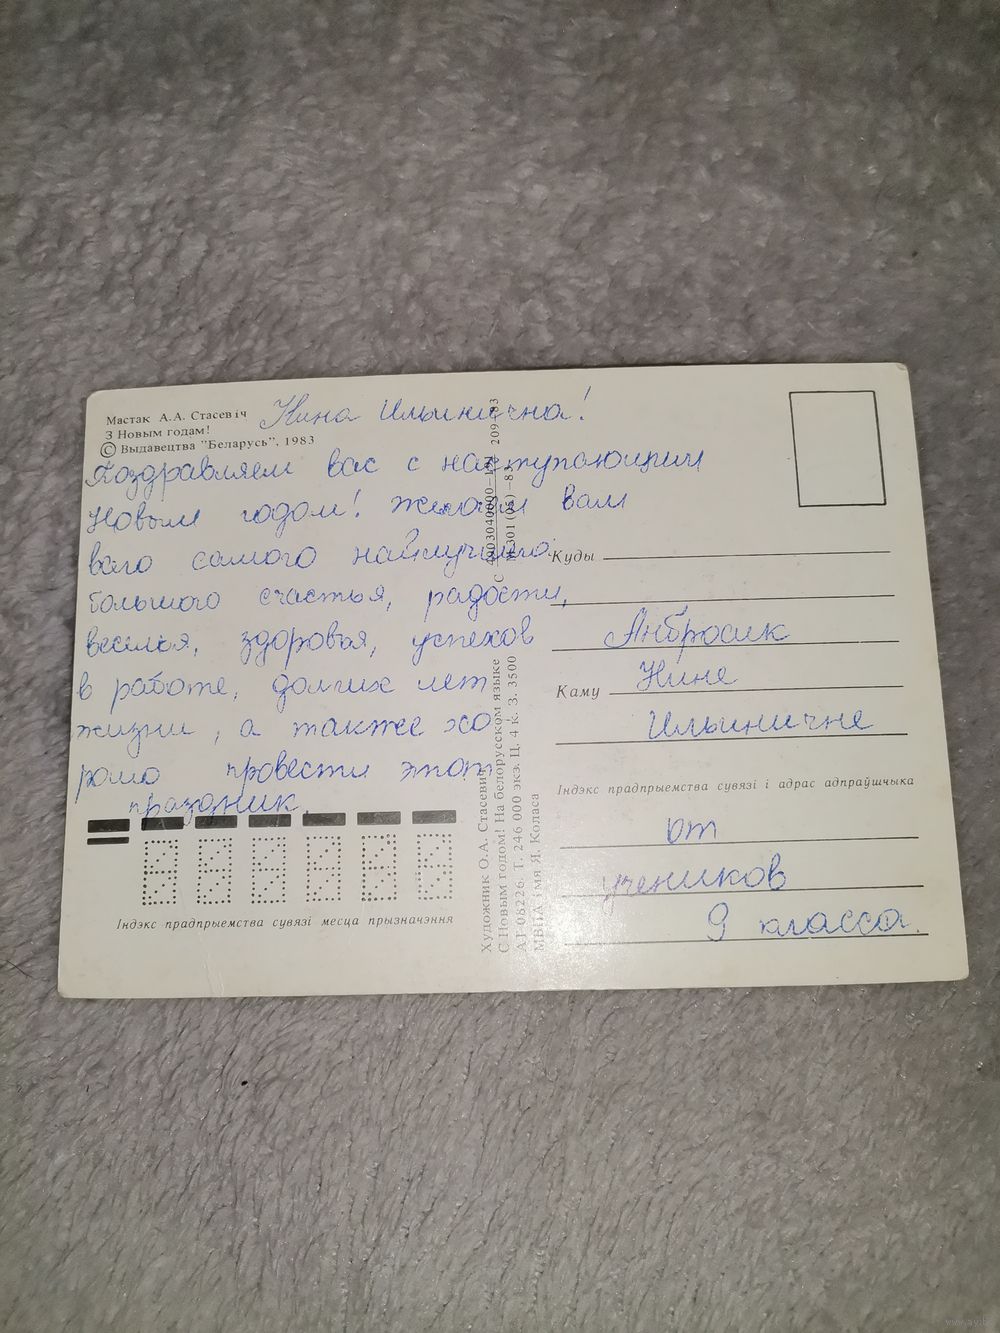 Мастак А.А. Стасевіч
З Новым годам!
© Выдавецтва "Беларусь", 1983
Нина Ильинична!
Поздравляем вас с наступающим
Новым годом! Желаем вам
всего самого найлучшего
большого счастья, радости,
веселья, здоровья, успехов
в работе, долгих лет
жизни, а также хо
рошо провести этот
праздник.
Індэкс прадпрыемства сувязі месца прызначэння
Художник О.А. Стасевич
С Новым годом! На белорусском языке
АТ 08226. Т. 246 000 экз. Ц. 4 к. З. 3500
МВПА імя Я. Коласа
М 301(05)–83 209–83
Куды
Амбросик
Каму Нине
Ильиничне
Індэкс прадпрыемства сувязі і адрас адпраўшчыка
от
учеников
9 класса.